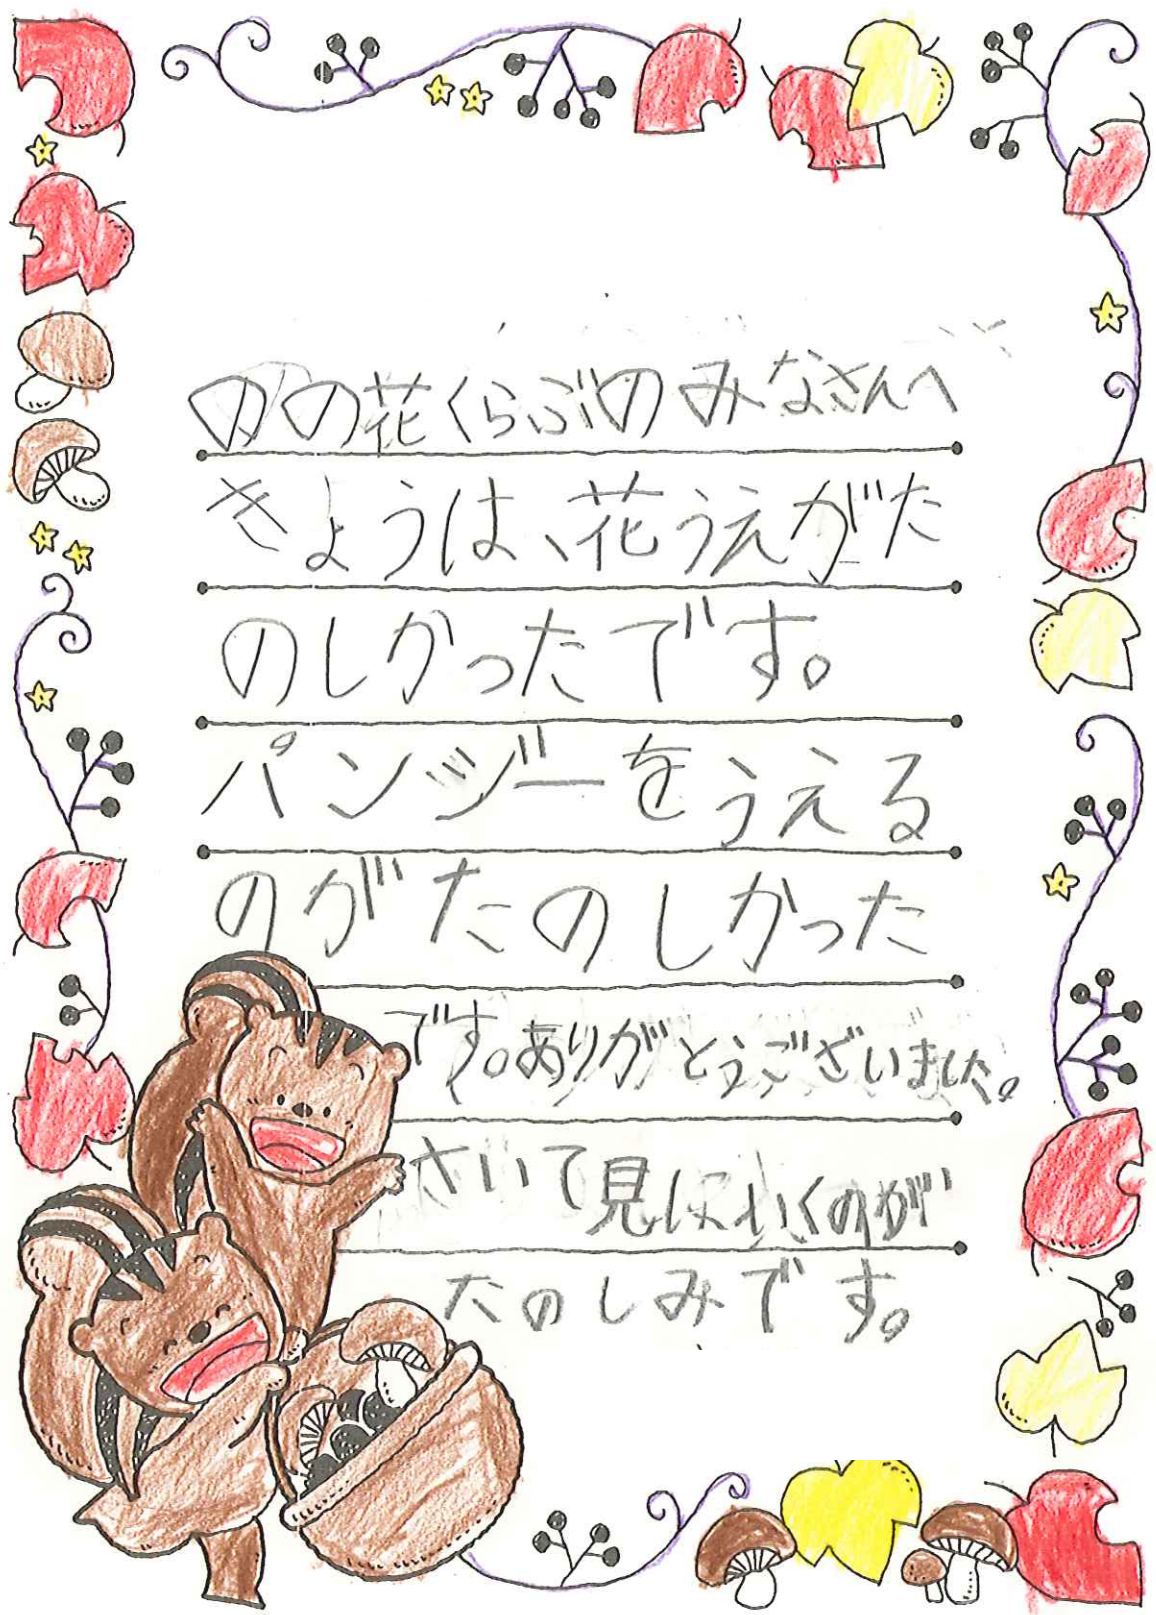 のの花くらぶの みなさんへ
きょうは、花うえがた
のしかったです。
パンジーをうえる
のがたのしかった
です。ありがとうございました。
さいて見にいくのが
たのしみです。